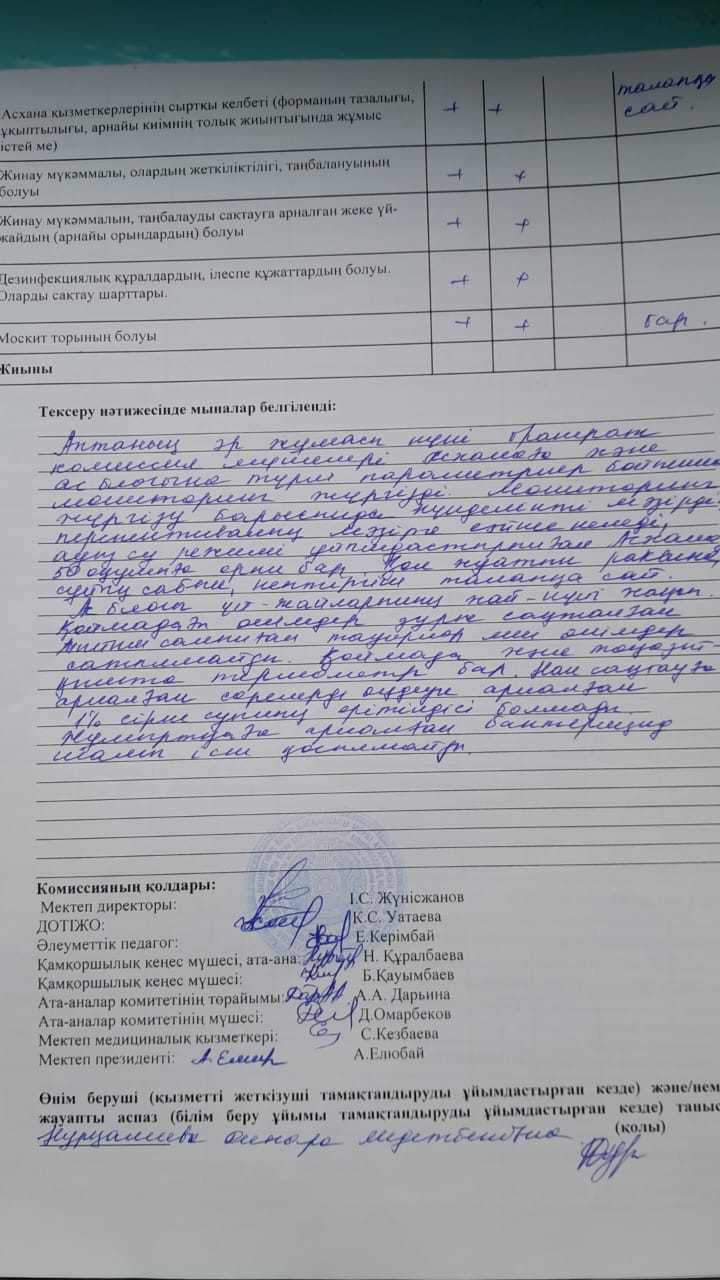 Асхана қызметкерлерінің сыртқы келбеті (форманың тазалығы, + + талапқа
ұқыптылығы, арнайы киімнің толық жиынтығында жұмыс сай.
істей ме)
Жинау мүкәммалы, олардың жеткіліктілігі, таңбалануының + +
болуы
Жинау мүкәммалын, таңбалауды сақтауға арналған жеке үй- + +
жайдың (арнайы орындардың) болуы
Дезинфекциялық құралдардың, ілеспе құжаттардың болуы. + +
Оларды сақтау шарттары.
Москит торының болуы + + бар.
Жиыны
Тексеру нәтижесінде мыналар белгіленді:
Аптаның әр жұмасы күні бракераж
комиссия мүшелері асханаға және
ас блогына түрлі параметрлер бойынша
мониторинг жүргізді. Мониторинг
жүргізу барысында күнделікті мәзірде
перспективалық мәзірге сәйкес келеді,
ауыз су режимі ұйымдастырылған Асхана
50 оқушыға орны бар. Қол жуатын раковина,
сұйық сабын, кептіргіш талапқа сай.
Ас блогы үй-жайларының жай-күйі жақсы.
Қоймадағы өнімдер дұрыс сақталған
Тыйым салынған тауарлар мен өнімдер
сатылмайды. Қоймада және тоңазыт-
қышта термометр бар. Нан сақтауға
арналған сөрелерді өңдеуге арналған
1% сірке суының ерітіндісі болмады.
Жұмыртқаға арналған бактерицид
шамы іске қосылмайды.
Комиссияның қолдары:
Мектеп директоры: І.С. Жүнісжанов
ДОТІЖО: К.С. Уатаева
Әлеуметтік педагог: Е.Керімбай
Қамқоршылық кеңес мүшесі, ата-ана: Н. Құралбаева
Қамқоршылық кеңес мүшесі: Б.Қауымбаев
Ата-аналар комитетінің төрайымы: А.А. Дарьина
Ата-аналар комитетінің мүшесі: Д.Омарбеков
Мектеп медициналық қызметкері: С.Кезбаева
Мектеп президенті: А.Елюбай
Өнім беруші (қызметті жеткізуші тамақтандыруды ұйымдастырған кезде) және/нем
жауапты аспаз (білім беру ұйымы тамақтандыруды ұйымдастырған кезде) таныс
(қолы)